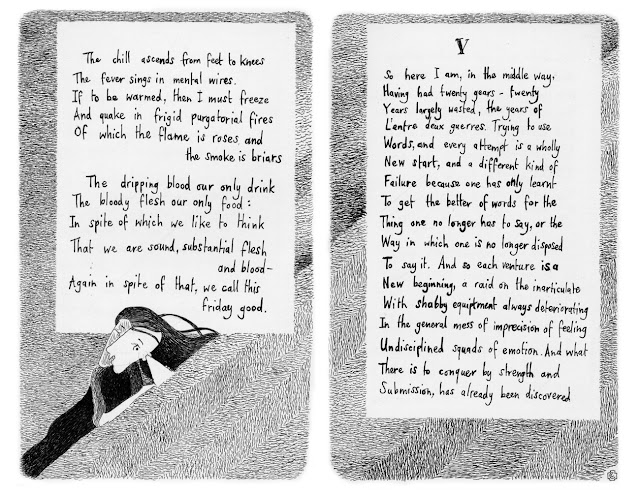 The chill ascends from feet to knees
The fever sings in mental wires.
If to be warmed, then I must freeze
And quake in frigid purgatorial fires
Of which the flame is roses, and
the smoke is briars
The dripping blood our only drink
The bloody flesh our only food:
In spite of which we like to think
That we are sound, substantial flesh
and blood-
Again in spite of that, we call this
friday good.
V
So here I am, in the middle way,
Having had twenty years - twenty
Years largely wasted, the years of
L'entre deux guerres. Trying to use
Words, and every attempt is a wholly
New start, and a different kind of
Failure because one has only learnt
To get the better of words for the
Thing one no longer has to say, or the
Way in which one is no longer disposed
To say it. And so each venture is a
New beginning, a raid on the inarticulate
With shabby equiptment always deteriorating
In the general mess of imprecision of feeling
Undisciplined squads of emotion. And what
There is to conquer by strength and
Submission, has already been discovered